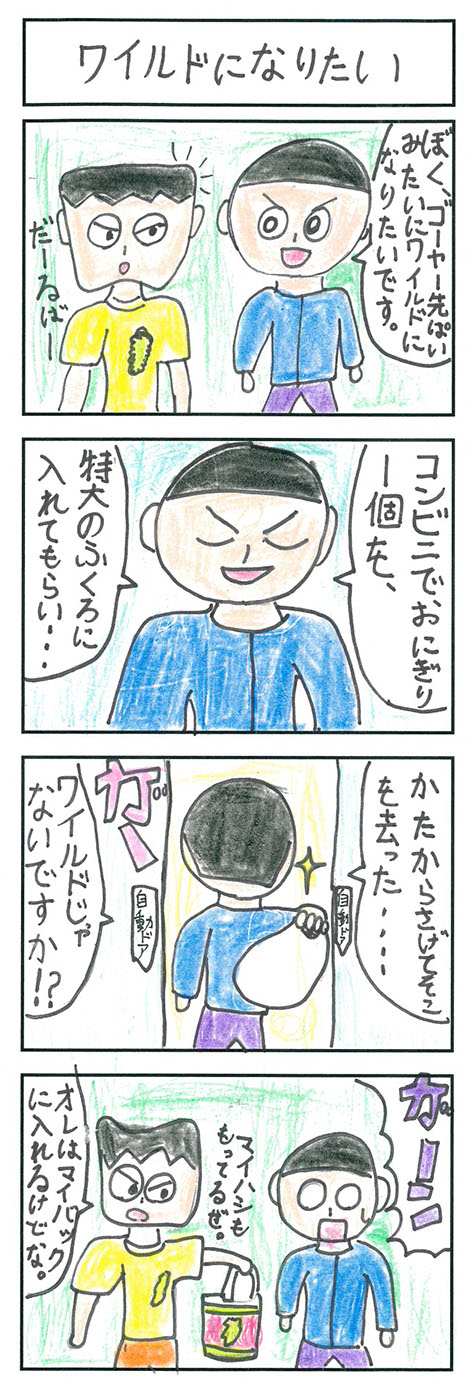 ワイルドになりたい
ぼく、ゴーヤー先ぱい
みたいにワイルドに
なりたいです。
だーるばー
コンビニでおにぎり
一個を、
特大のふくろに
入れてもらい・・・
かたからさげてそこ
を去った・・・・
自動ドア
ガー
自動ドア
ワイルドじゃ
ないですか!?
ガーン
マイハシも
もってるぜ。
オレはマイバック
に入れるけどな。